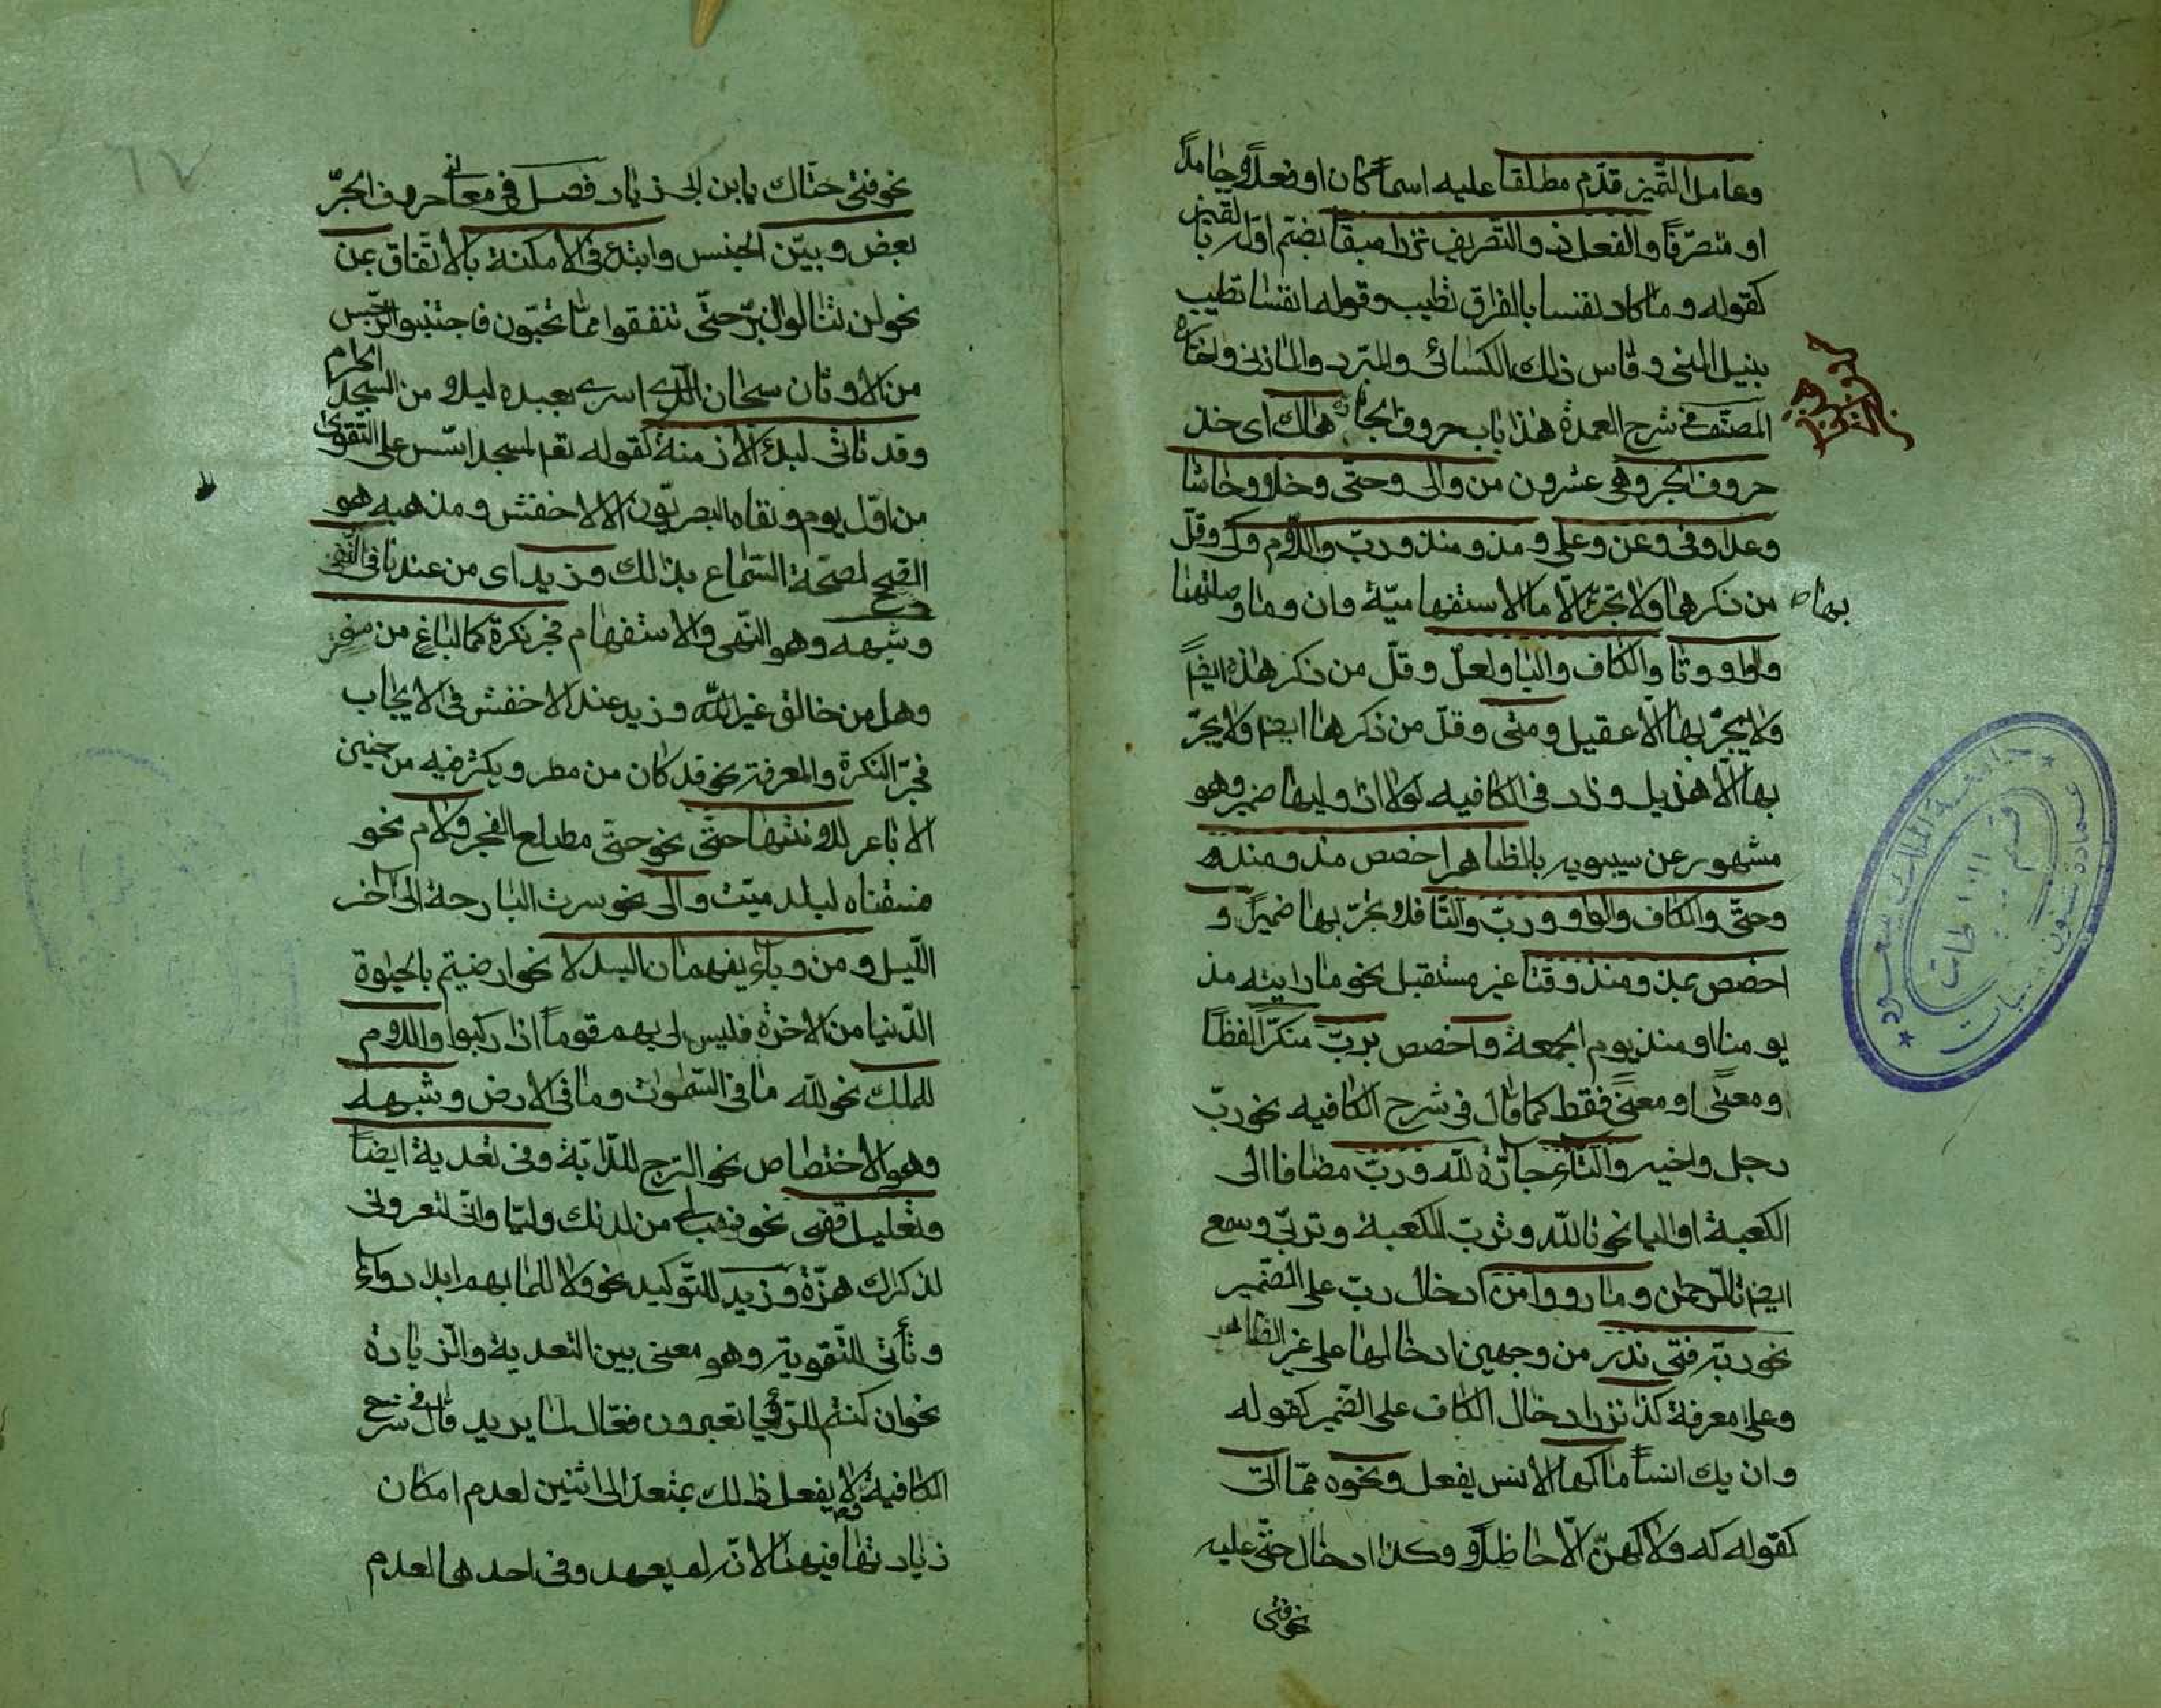 وعامل التّميز قدّم مطلقا عليه اسماً كان او فعلاً وجامداً
او متصرّفاً والفعل ذو والتصريف نزرا سبقاً بضم اوّله بالتميز
كقوله وما كاد نفسا بالفراق تطيب وقوله انفسا تطيب
بنيل المنى وقاس ذلك الكسائى والمبرد والمازنى واختاره
المصنّف فى شرح العمدة هذا باب حروف الجرّ هاك اى خذ
حروف الجر وهى عشرون من والى وحتّى وخلا وحاشا
وعدا وفى وعن وعلى ومذ ومنذ وربّ واللّام وكى وقلّ
من ذكرها ولا تجرّ الّا ما الاستفهاميّة وان وما وصلتهما
بها
واو وتا والكاف والبا ولعلّ وقلّ من ذكر هذه ايضاً
ولا يجرّ بها الّا عقيل ومتى وقلّ من ذكرها ايضا ولا يجرّ
بها الّا هذيل وزاد فى الكافيه لولا اذا وليها ضمير وهو
مشهور عن سيبويه بالظاهر اخصص منذ ومذ
وحتّى والكاف والواو وربّ والتّا فلا يجرّ بها ضميراً و
اخصص بمذ ومنذ وقتا غير مستقبل نحو ما رايته مذ
يومنا او منذ يوم الجمعة واخصص بربّ منكّراً لفظاً
ومعنًى او معنًى فقط كما قال فى شرح الكافيه نحو ربّ
رجل واخيه والتاء جارّة لله وربّ مضافا الى
الكعبة او اليا نحو تالله وتربّ الكعبة وتربّى وسمع
ايضا تالرّحمن وما رووا من ادخال ربّ على الضّمير
نحو ربّه فتى نذر من وجهين ادخالها على غير الظاهر
وعلى معرفة كذا نزر ادخال الكاف على الضّمير كقوله
وان يك انساً ما كها الانس يفعل ونحوه ممّا اتى
كقوله كه ولا كهنّ الّا حاظلاً وكذا ادخال حتّى عليه
نحو فتى
نحو فتى حتّاك يابن ابى زياد فصل فى معانى حروف الجرّ
بعّض وبيّن الجنس وابتدئ فى الامكنة بالاتّفاق بمن
نحو لن تنالوا البرّ حتّى تنفقوا ممّا تحبّون فاجتنبوا الرّجس
من الاوثان سبحان الّذى اسرى بعبده ليلا من المسجد الحرام
وقد تاتى لبدئ الازمنة كقوله تعم لمسجد اسّس على التّقوى
من اوّل يوم ونفاه البصريّون الّا الاخفش ومذهبه هو
الصّحيح لصحّة السّماع بذلك وزيد اى من عندنا فى النّفى
وشبهه وهو النّهى والاستفهام فجر نكرة كما لباغ من مفر
وهل من خالق غير اللّه وزيد عند الاخفش فى الايجاب
فجرّ النكرة والمعرفة نحو قد كان من مطر ويكثر فيه من حنين
الاباعر للانتها حتّى نحو حتّى مطلع الفجر ولام نحو
فسقناه لبلد ميّت والى نحو سرت البارحة الى آخر
اللّيل ومن وباء يفهمان البدلا نحو ارضيتم بالحيوة
الدّنيا من الاخرة فليس لى بهم قوماً اذا ركبوا واللّام
للملك نحو للّه ما فى السّموت وما فى الارض وشبهه
وهو الاختصاص نحو السّرج للدّابّة وفى تعدية ايضاً
وتعليل قفى نحو فهب لى من لدنك وليّا وانّى لتعرونى
لذكراك هزّة وزيد للتّوكيد نحو ولا للما بهم ابدا دواء
وتأتى للتّقوية وهو معنى بين التعدية والزّيادة
نحو ان كنتم للرّؤيا تعبرون فعّال لما يريد قال فى شرح
الكافية ولا يفعل ذلك بمتعدّ الى اثنين لعدم امكان
زيادتها فيهما لانّه لم يعهد وفى احدهما لعدم